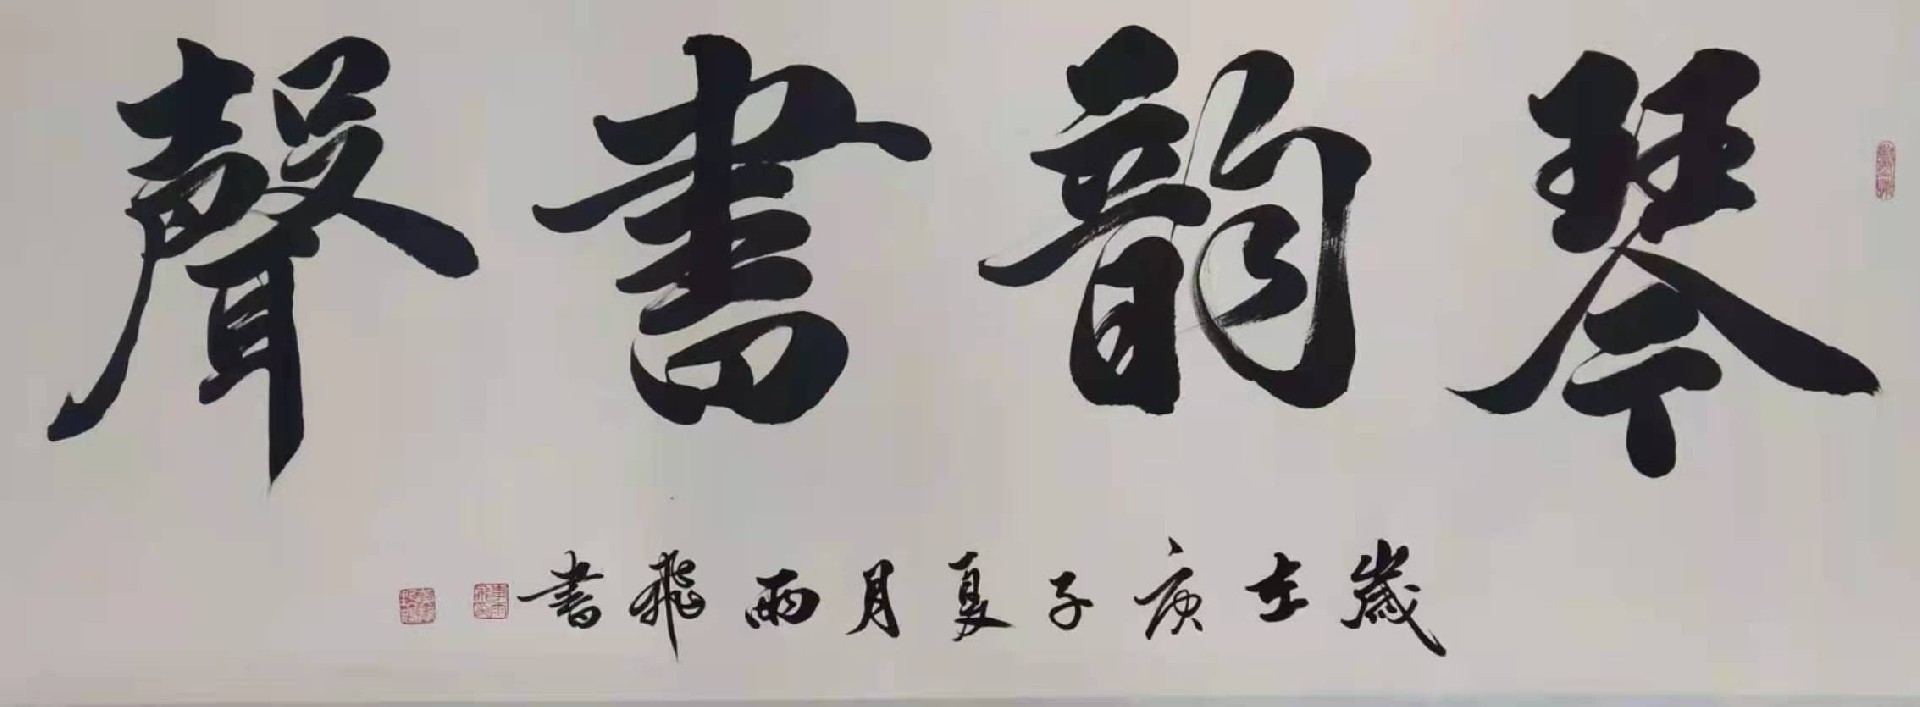 琴韵書聲
歲在庚子夏月雨飛書